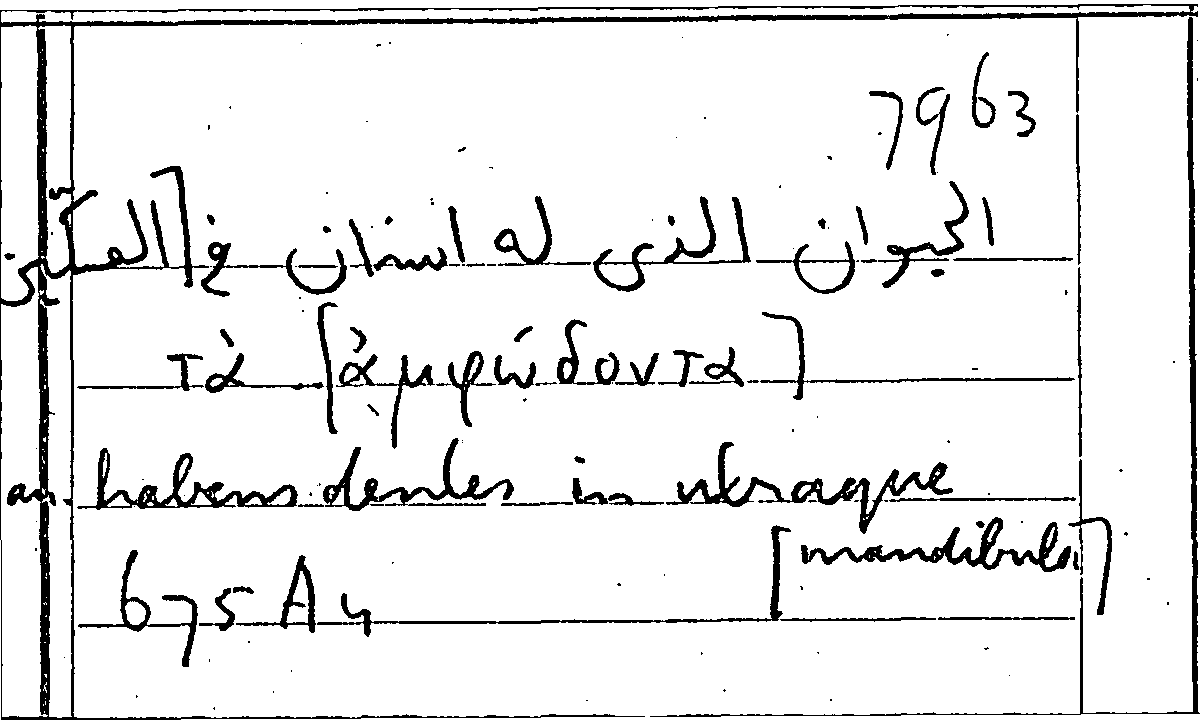 7963
الحيوان الذى له اسنان فى] الفكّين
τὰ [ἀμφώδοντα]
an. habens dentes in utraque
[mandibula]
675 A4